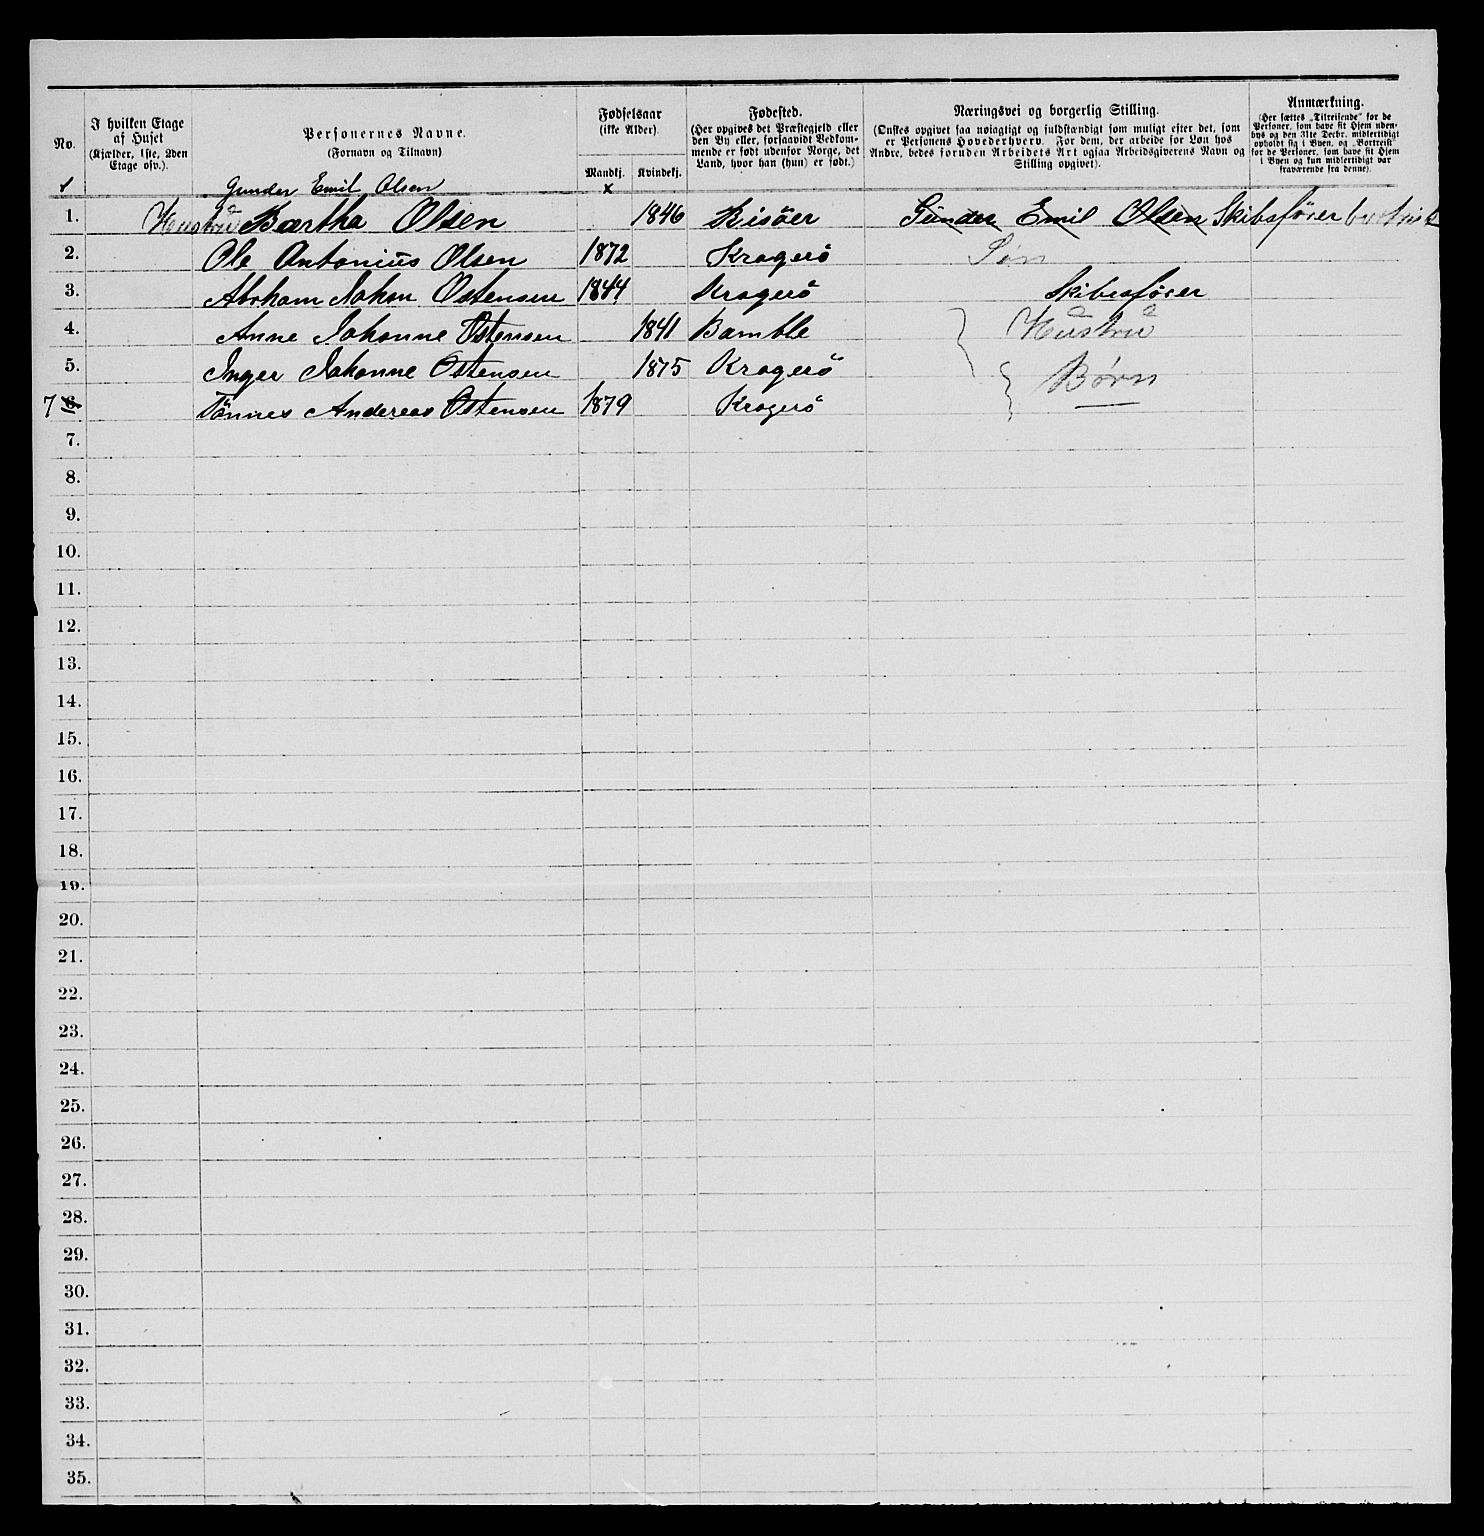 No.
I hvilken Etage
af Huset
(Kjælder, 1ste, 2den
Etage osv.).
Personernes Navne.
(Fornavn og Tilnavn)
Fødselsaar
(ikke Alder).
Mandkj.
Kvindekj.
Fødested.
(Her opgives det Præstegjeld eller
den By eller, forsaavidt Vedkom-
mende er født udenfor Norge, det
Land, hvor han (hun) er født.)
Næringsvei og borgerlig Stilling.
(Ønskes opgivet saa nøiagtigt og fuldstændigt som muligt efter det, som
er Personens Hovederhverv. For dem, der arbeide for Løn hos
Andre, bedes foruden Arbeidets Art ogsaa Arbeidsgiverens Navn og
Stilling opgivet).
Anmærkning.
(Her sættes „Tilreisende" for de
Personer, som have sit Hjem uden-
bys og den 31te Decbr. midlertidigt
opholdt sig i Byen, og „Bortreist"
for de Personer, som have sit Hjem
i Byen og kun midlertidigt var
fraværende fra denne).
1 Gunder Emil Olsen x
1. Hustru Bærtha Olsen 1846 Risöer Gunder Emil Olsen Skibsfører bortreist
2. Ole Antonius Olsen 1872 Kragerö Søn
3. Abraham Johan Ostensen 1844 Kragerö Skibsfører
4. Anne Johanne Ostensen 1841 Bamble Hustru
5. Inger Johanne Ostensen 1875 Kragerö Børn
7 6. Tönnes Andereas Ostensen 1879 Kragerö
7.
8.
9.
10.
11.
12.
13.
14.
15.
16.
17.
18.
19.
20.
21.
22.
23.
24.
25.
26.
27.
28.
29.
30.
31.
32.
33.
34.
35.